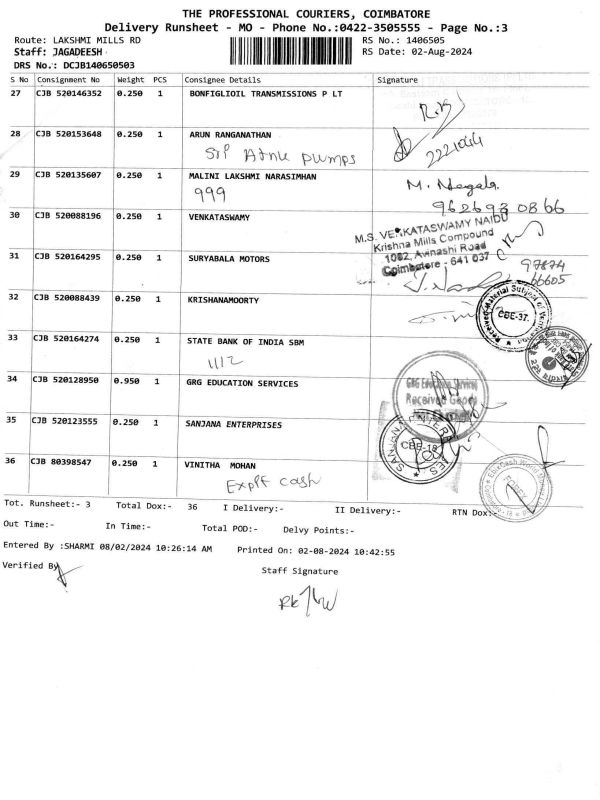 THE PROFESSIONAL COURIERS, COIMBATORE
Delivery Runsheet - MO - Phone No.:0422-3505555 - Page No.:3
Route: LAKSHMI MILLS RD RS No.: 1406505
Staff: JAGADEESH RS Date: 02-Aug-2024
DRS No.: DCJB140650503
S No Consignment No Weight PCS Consignee Details Signature
27 CJB 520146352 0.250 1 BONFIGLIOIL TRANSMISSIONS P LT
28 CJB 520153648 0.250 1 ARUN RANGANATHAN
pumps
29 CJB 520135607 0.250 1 MALINI LAKSHMI NARASIMHAN
999
M. Nagala
9626930866
30 CJB 520088196 0.250 1 VENKATASWAMY
M.S. VENKATASWAMY NAIDU
Krishna Mills Compound
1082, Avinashi Road
Coimbatore - 641 037
31 CJB 520164295 0.250 1 SURYABALA MOTORS
97874
66605
32 CJB 520088439 0.250 1 KRISHANAMOORTY
Received Material Subject of Verification
CBE-37.
33 CJB 520164274 0.250 1 STATE BANK OF INDIA SBM
1112
34 CJB 520128950 0.950 1 GRG EDUCATION SERVICES
GRG Education Services
Received
35 CJB 520123555 0.250 1 SANJANA ENTERPRISES
SANJANA ENTERPRISES
CBE-18
36 CJB 80398547 0.250 1 VINITHA MOHAN
cash
Tot. Runsheet:- 3 Total Dox:- 36 I Delivery:- II Delivery:- RTN Dox:-
Out Time:- In Time:- Total POD:- Delvy Points:-
Entered By :SHARMI 08/02/2024 10:26:14 AM Printed On: 02-08-2024 10:42:55
Verified By
Staff Signature